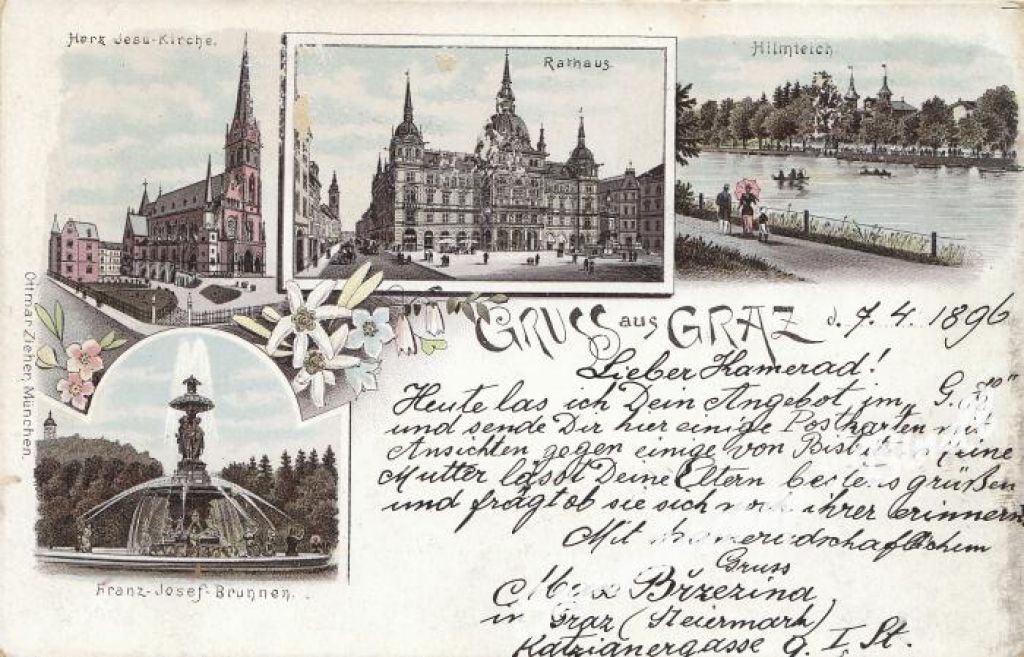 Herz Jesu-Kirche.
Rathaus.
Hilmteich
Ottmar Zieher, München.
GRUSS aus GRAZ d. 7. 4. 1896
Lieber Kamerad!
Heute las ich Dein Angebot im „ G.
und sende Dir hier einige Postkarten
Ansichten gegen einige von
Mutter lässt Deine Eltern bestens grüßen
und frägt ob sie sich noch ihrer erinnern
Mit kameradschaftlichem
Gruss
Brzezina
in Graz (Steiermark)
Katzianergasse 9. I. St.
Franz-Josef-Brunnen.